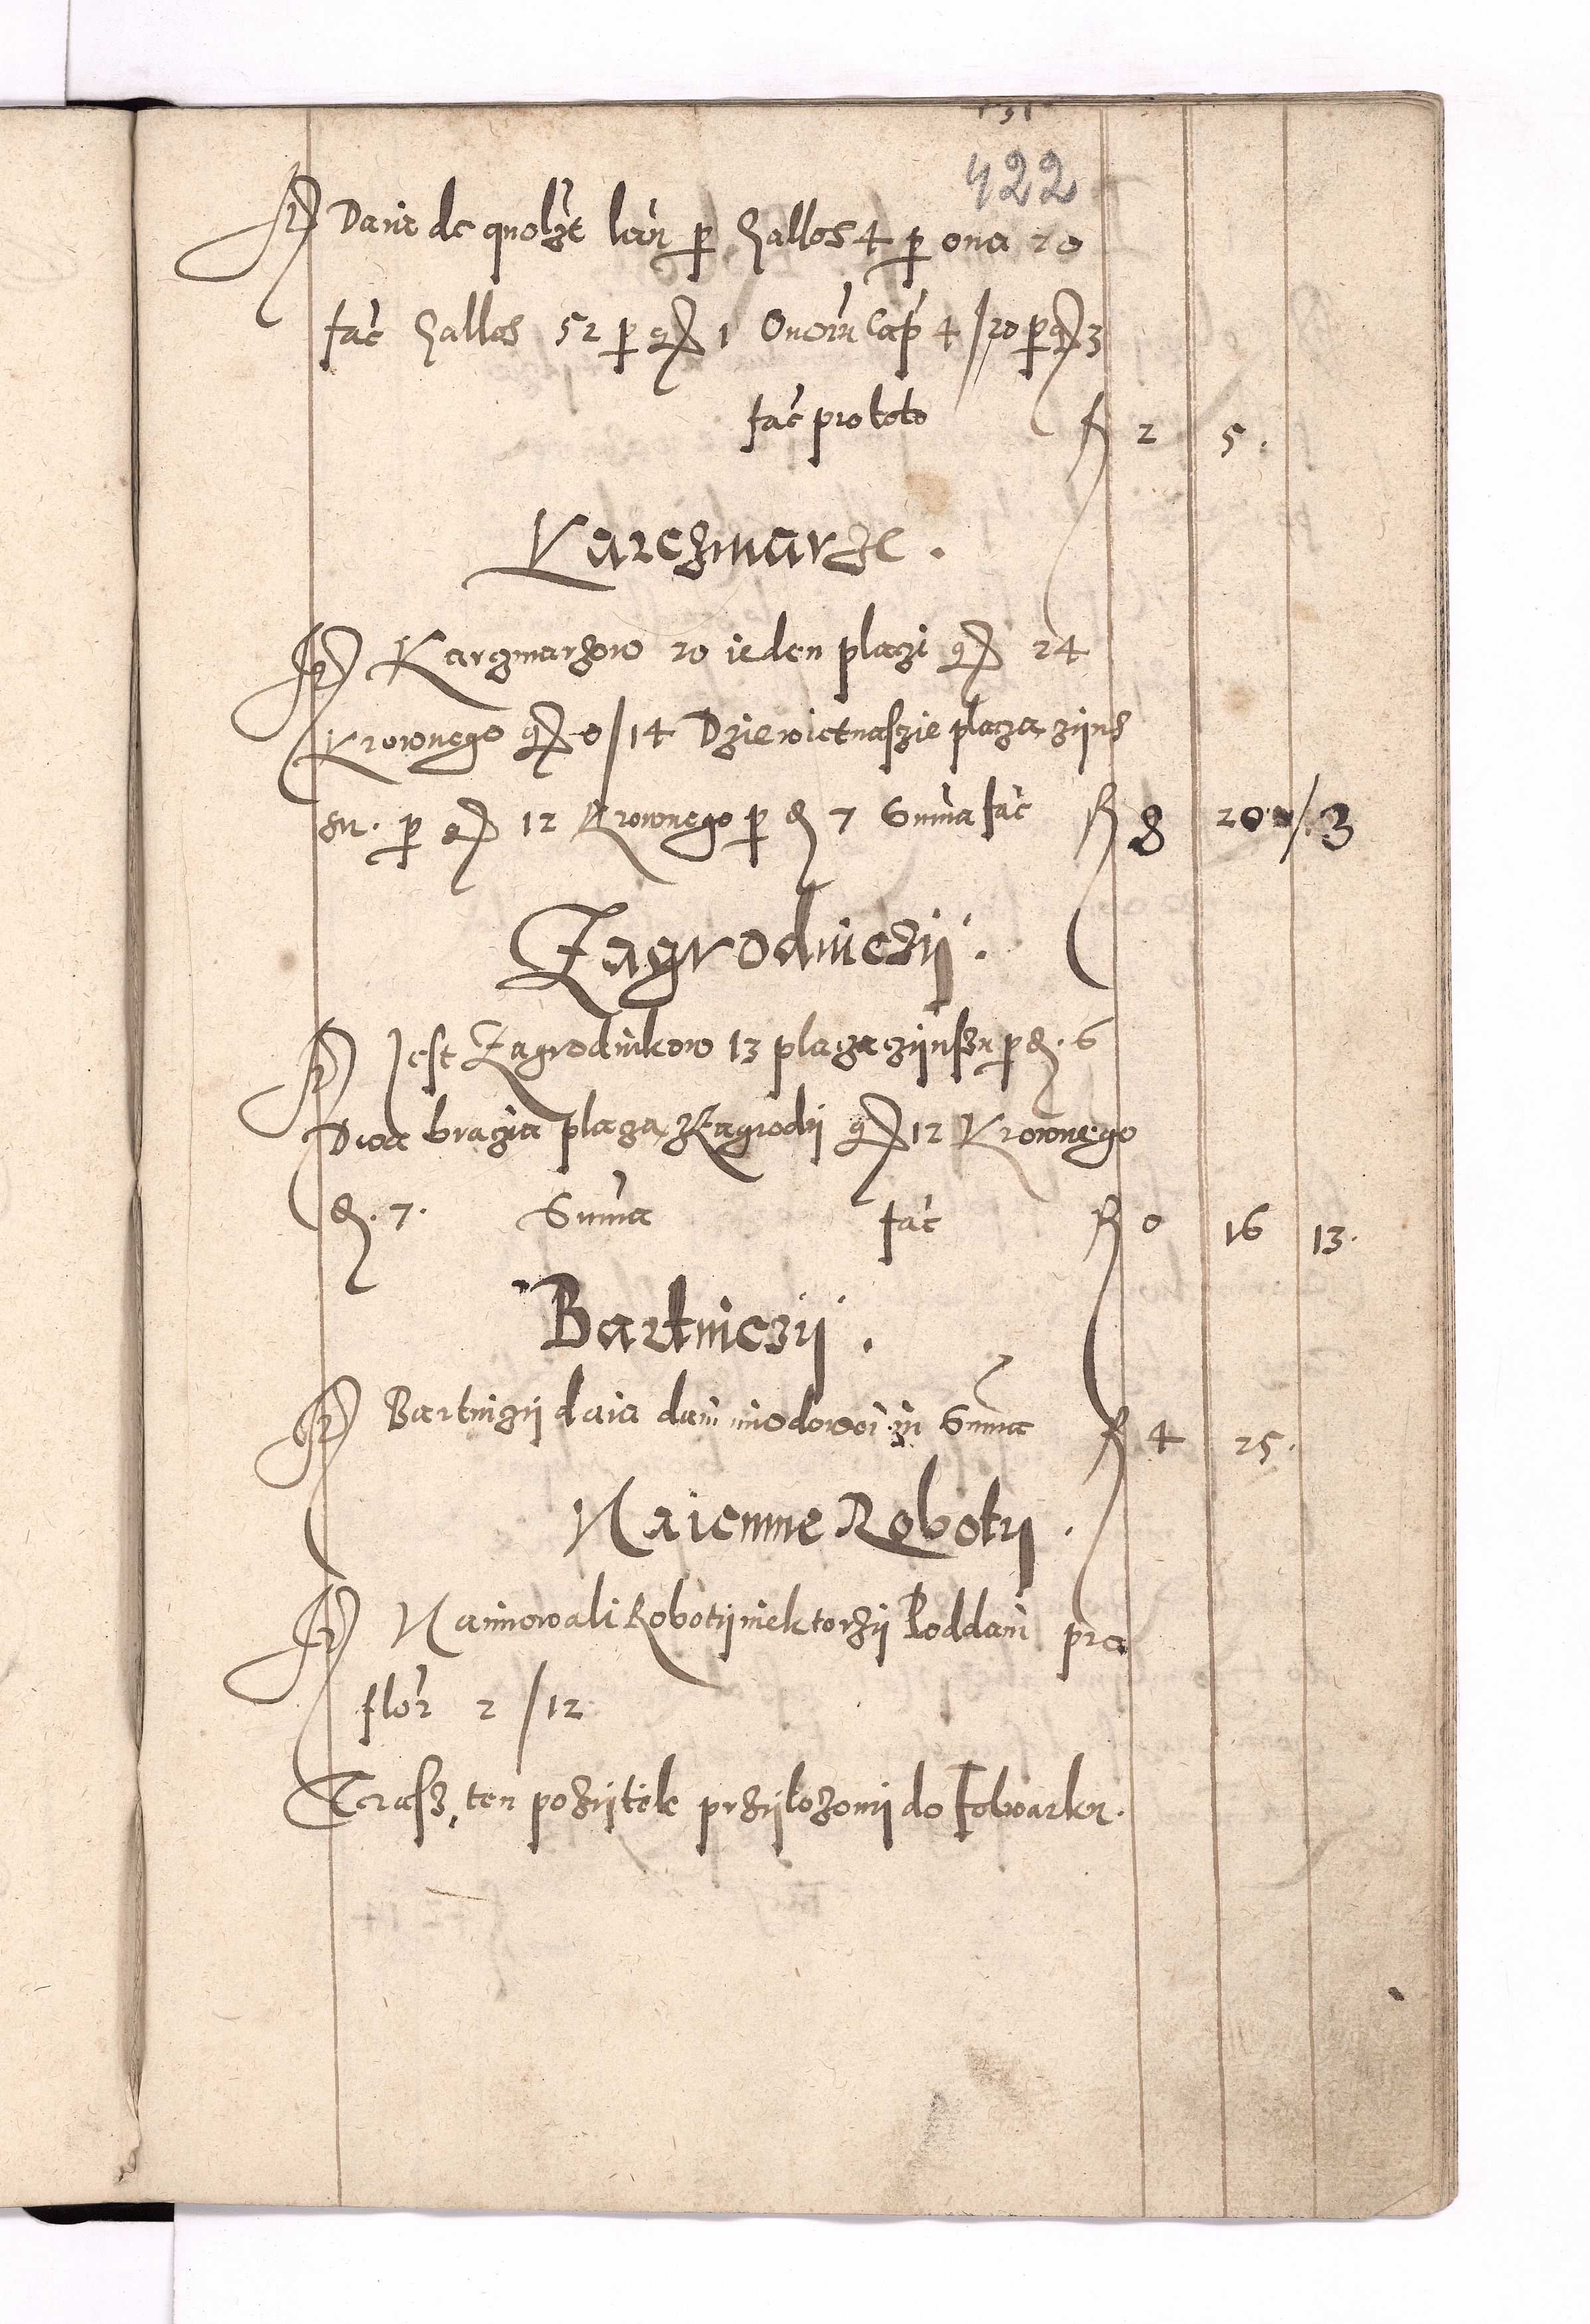 422
It Daia de quolzt lan p Gallos 4 p oua 20
fac Gallos 52 p gr 1 Ouoru Cap 4/20 p gr 3
fac pro toto f 2 5.
Karczmarze.
It Karzmarzow 20 ieden plazi gr 24
Krownego gr 0/14 Dziewietnaszie plaza zijns
zu. p gr 12 Krownego p d 7 Suma fac f 8 20 /. 3
Zagrodniczij.
It Jest Zagrodnikow 13 plaza zijnszu p d. 6
Dwa brazia plaza z Zagrodij gr 12 Krownego
d. 7. Suma fac f 0 16 13.
Bartniczij.
It Bartnizij daia dani miodowei in Suma f 4 25.
Naiemne Robotij.
It Naimowali Robotij niektorzij Poddani pro
flor 2/12
Terasz ten pozijtek przijlozonij do folwarku.